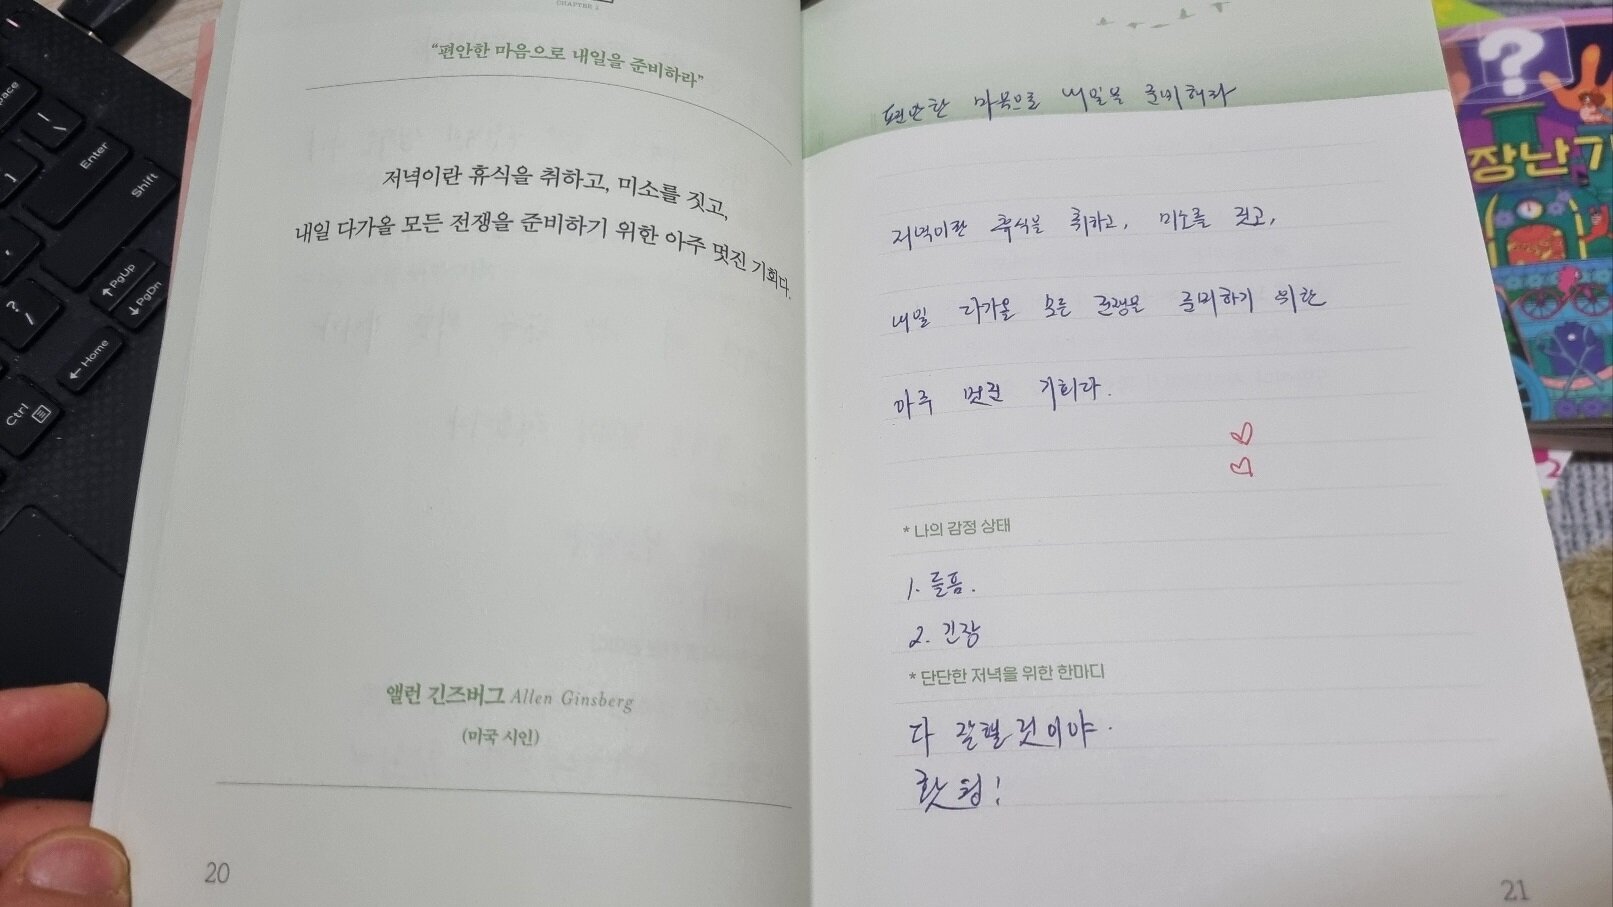 CHAPTER 1
“편안한 마음으로 내일을 준비하라”
저녁이란 휴식을 취하고, 미소를 짓고,
내일 다가올 모든 전쟁을 준비하기 위한 아주 멋진 기회다.
앨런 긴즈버그 Allen Ginsberg
(미국 시인)
20
편안한 마음으로 내일을 준비해라
저녁이란 휴식을 취하고, 미소를 짓고,
내일 다가올 모든 전쟁을 준비하기 위한
아주 멋진 기회다.
* 나의 감정 상태
1. 들뜸.
2. 긴장
* 단단한 저녁을 위한 한마디
다 잘될 것이야.
홧팅!
21
pace
Enter
Shift
PgUp
PgDn
Home
Ctrl
?
장난기
2